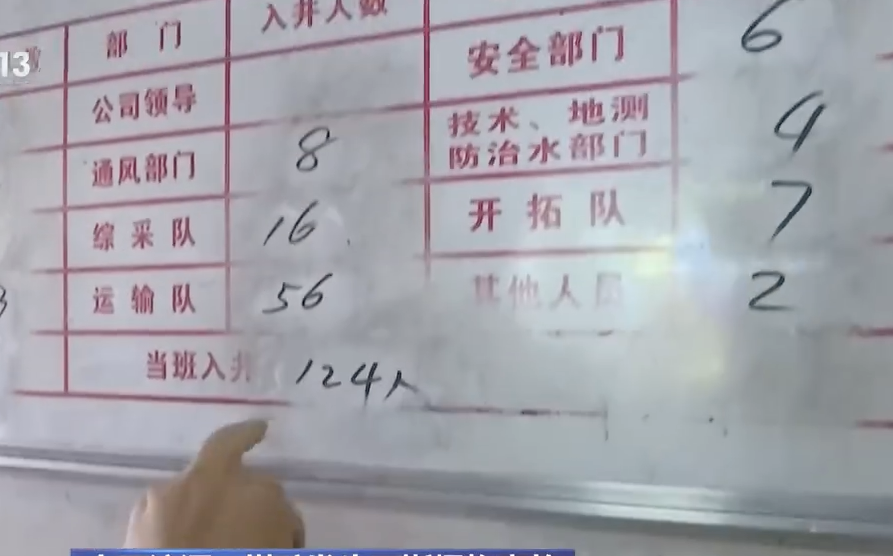 13
部门
入井人数
安全部门
6
公司领导
技术、地测
防治水部门
4
通风部门
8
综采队
16
开拓队
7
运输队
56
其他人员
2
当班入井
124人